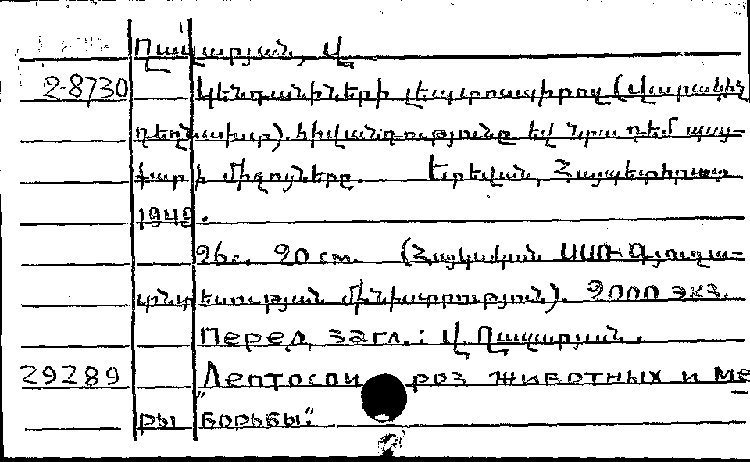 Ղազարյան, Վ.
2-8730 Կենդանիների լեպտոսպիրոզ (վարակիչ
դեղնախտ). հիվանդությունը եվ նրա դեմ պայ-
քարի միջոցները. Երեվան, Հայպետհրատ
1949.
26 с. 20 см. (Հայկական ՍՍՌ Գյուղա-
տնտեսության մինիստրություն). 2000 экз.
Перед загл.: Վ. Ղազարյան.
29289 "Лептоспироз животных и ме
ры борьбы".